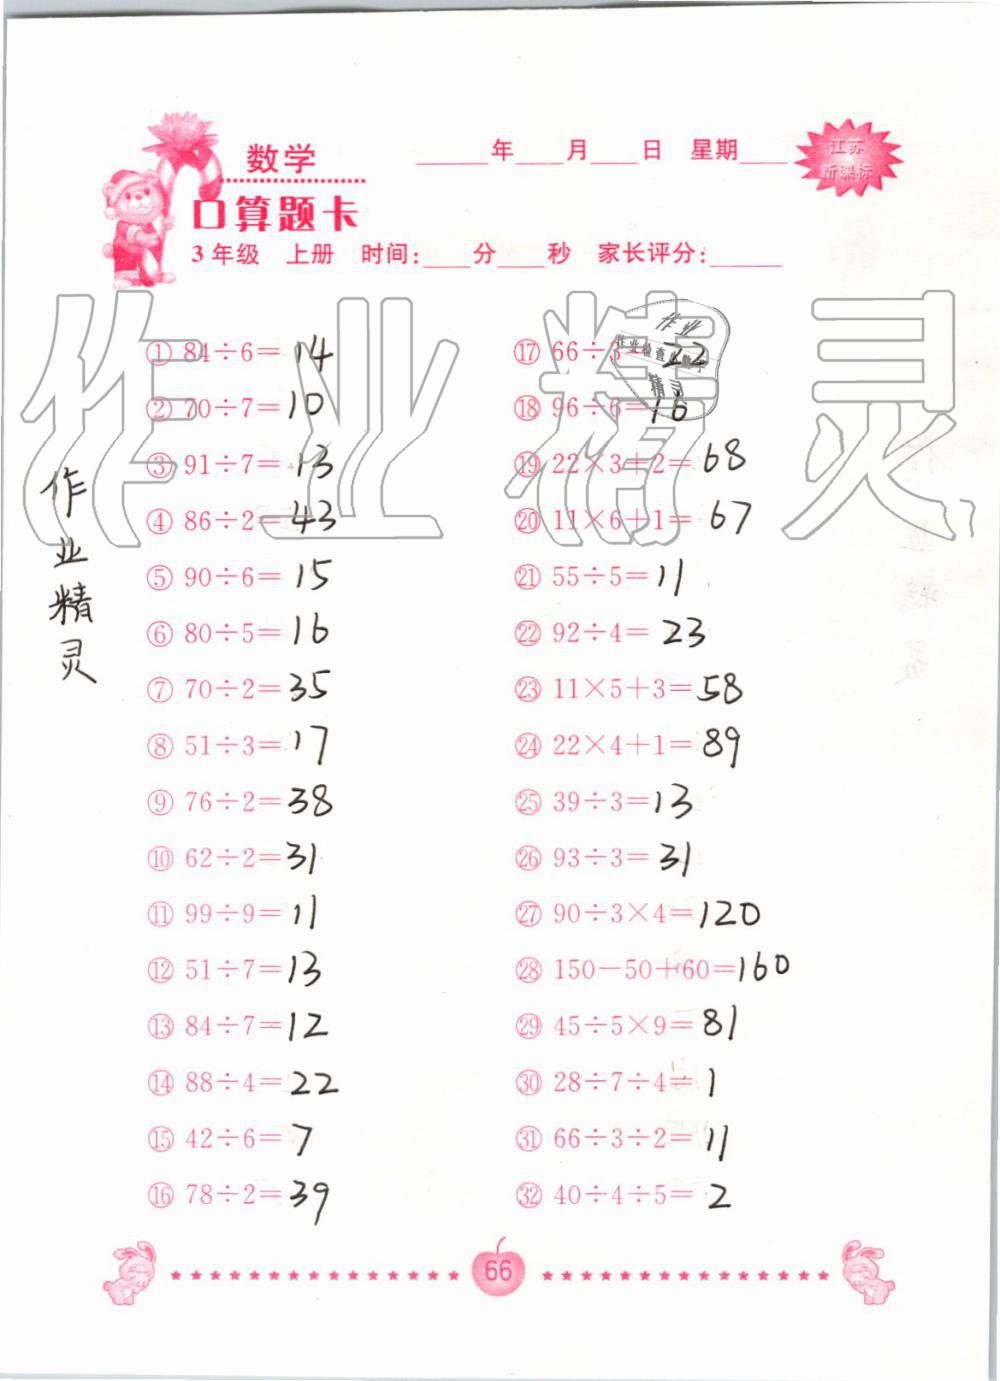 数学
____年____月____日 星期____
江苏
新课标
口算题卡
3年级 上册 时间:____分____秒 家长评分:____
作业精灵
① 84÷6=14
② 70÷7=10
③ 91÷7=13
④ 86÷2=43
⑤ 90÷6=15
⑥ 80÷5=16
⑦ 70÷2=35
⑧ 51÷3=17
⑨ 76÷2=38
⑩ 62÷2=31
⑪ 99÷9=11
⑫ 51÷7=13
⑬ 84÷7=12
⑭ 88÷4=22
⑮ 42÷6=7
⑯ 78÷2=39
作业精灵
⑰ 66÷3=22
作业
精灵
⑱ 96÷6=16
⑲ 22×3+2=68
⑳ 11×6+1=67
㉑ 55÷5=11
㉒ 92÷4=23
㉓ 11×5+3=58
㉔ 22×4+1=89
㉕ 39÷3=13
㉖ 93÷3=31
㉗ 90÷3×4=120
㉘ 150-50+60=160
㉙ 45÷5×9=81
㉚ 28÷7÷4=1
㉛ 66÷3÷2=11
㉜ 40÷4÷5=2
66